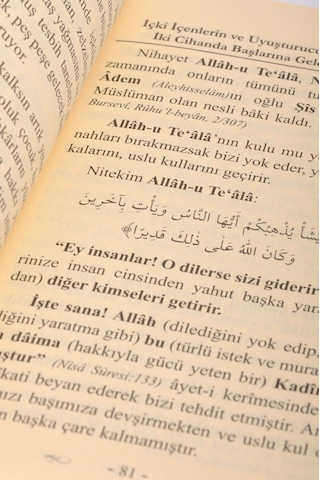 muş yoğunun
tesbih tanes
pek peşe gelec
ruyor.
kalksın artık
oluk çocuk
İçki İçenlerin ve Uyuşturucu
İki Cihanda Başlarına Gele
Nihayet Allâh-u Te‘âlâ, N
zamanında onların tümünü tu
Âdem (Aleyhisselâm)ın oğlu Şîs
Müslüman olan nesli bâkî kaldı.
Bursevî, Rûhu'l-beyân, 2/307)
Allâh-u Te‘âlâ'nın kulu mu yo
nahları bırakmazsak bizi yok eder, y
kalarını, uslu kullarını geçirir.
Nitekim Allâh-u Te‘âlâ:
يَشَأْ يُذْهِبْكُمْ أَيُّهَا النَّاسُ وَيَأْتِ بِآخَرِينَ
وَكَانَ اللهُ عَلَى ذَلِكَ قَدِيرًا﴾
"Ey insanlar! O dilerse sizi giderir
rinize insan cinsinden yahut başka yara
dan) diğer kimseleri getirir.
İşte sana! Allâh (dilediğini yok edip,
diğini yaratma gibi) bu (türlü istek ve mura
a dâima (hakkıyla gücü yeten bir) Kadîr
ştur" (Nisâ Sûresi:133) âyet-i kerîmesinde
kati beyan ederek bizi tehdit etmiştir. Ar
ızı başımıza devşirmekten ve uslu kul o
n başka çare kalmamıştır.
- 81 -